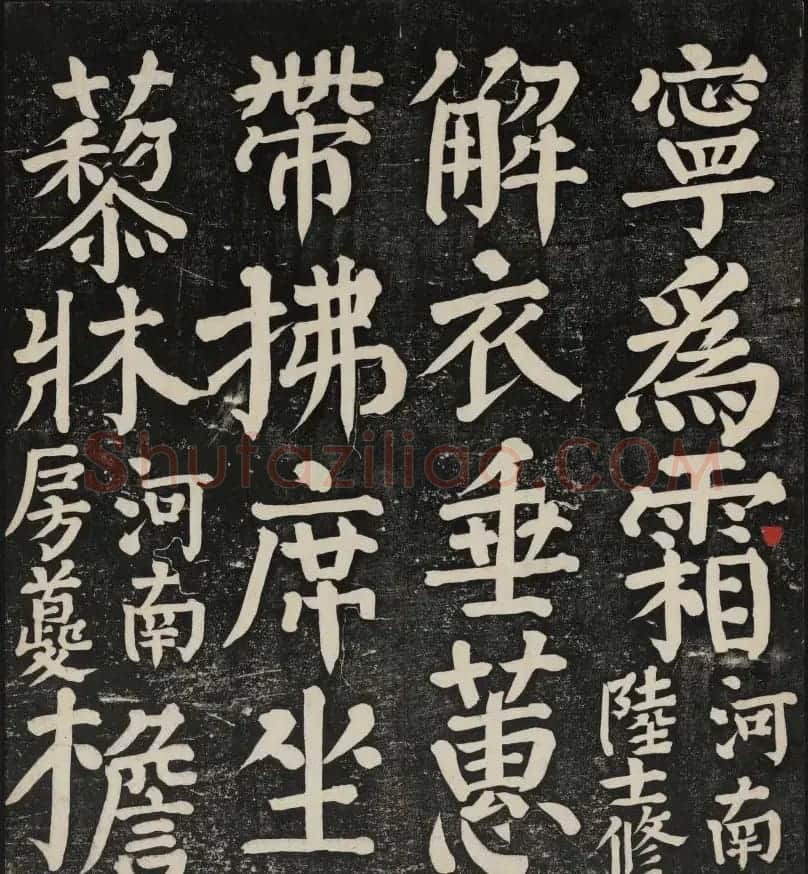 寧爲霜
河南
陸士修
解衣垂蕙
帶拂席坐
藜牀
河南
房夔
檐
Shufaziliao.COM